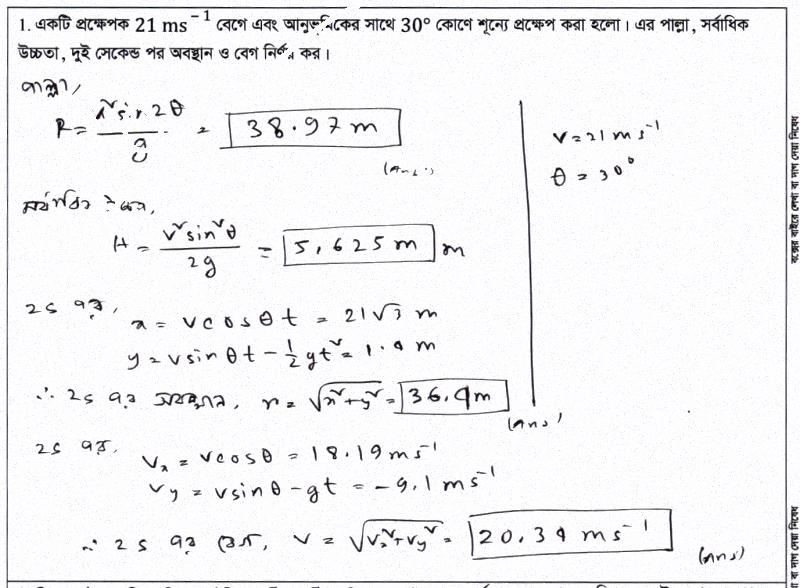 1. একটি প্রক্ষেপক 21 ms⁻¹ বেগে এবং আনুভূমিকের সাথে 30° কোণে শূন্যে প্রক্ষেপ করা হলো। এর পাল্লা, সর্বাধিক
উচ্চতা, দুই সেকেন্ড পর অবস্থান ও বেগ নির্ণয় কর।
পাল্লা,
R = v² sin 2θ / g = 38.97 m
(Ans.)
v = 21 ms⁻¹
θ = 30°
সর্বাধিক উচ্চতা,
H = v² sin² θ / 2g = 5.625 m m
2s পর,
x = v cos θ t = 21√3 m
y = v sin θ t - ½ gt² = 1.4 m
∴ 2s পর অবস্থান, r = √x² + y² = 36.4 m
(Ans)
2s পর,
vₓ = v cos θ = 18.19 ms⁻¹
v_y = v sin θ - gt = -9.1 ms⁻¹
∴ 2s পর বেগ, v = √vₓ² + v_y² = 20.34 ms⁻¹
(Ans)
বক্সের বাইরে লেখা বা দাগ দেয়া নিষেধ
বা দাগ দেয়া নিষেধ